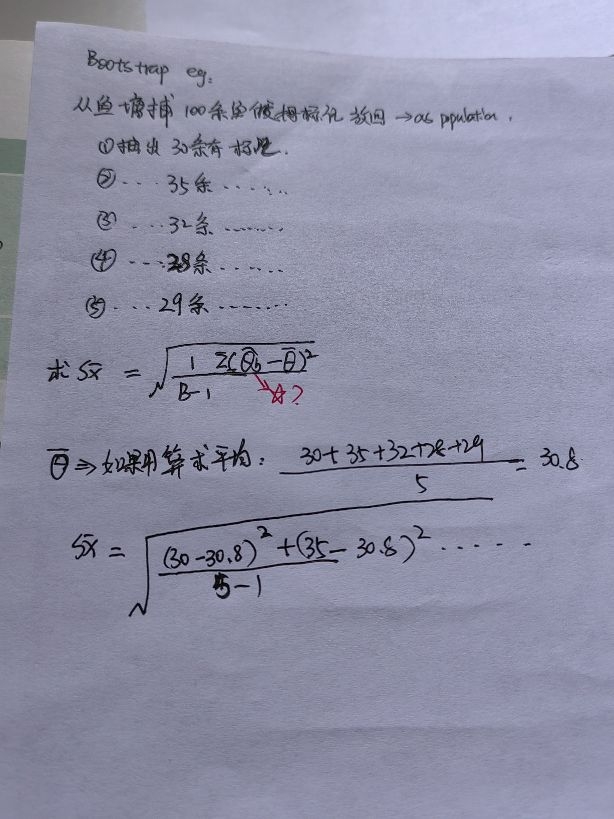 Bootstrap eg:
从鱼塘捕100条鱼做标记放回→as ppulation.
①抽出30条有标记.
②....35条......
③....32条.......
④....28条......
⑤....29条.......
求 Sx̄ = √(1/(B-1) Σ(θ̂b-θ̄)²)
☆?
θ̄ ⇒如果用算术平均: (30+35+32+28+29)/5 = 30.8
Sx̄ = √(((30-30.8)²+(35-30.8)²......)/(5-1))